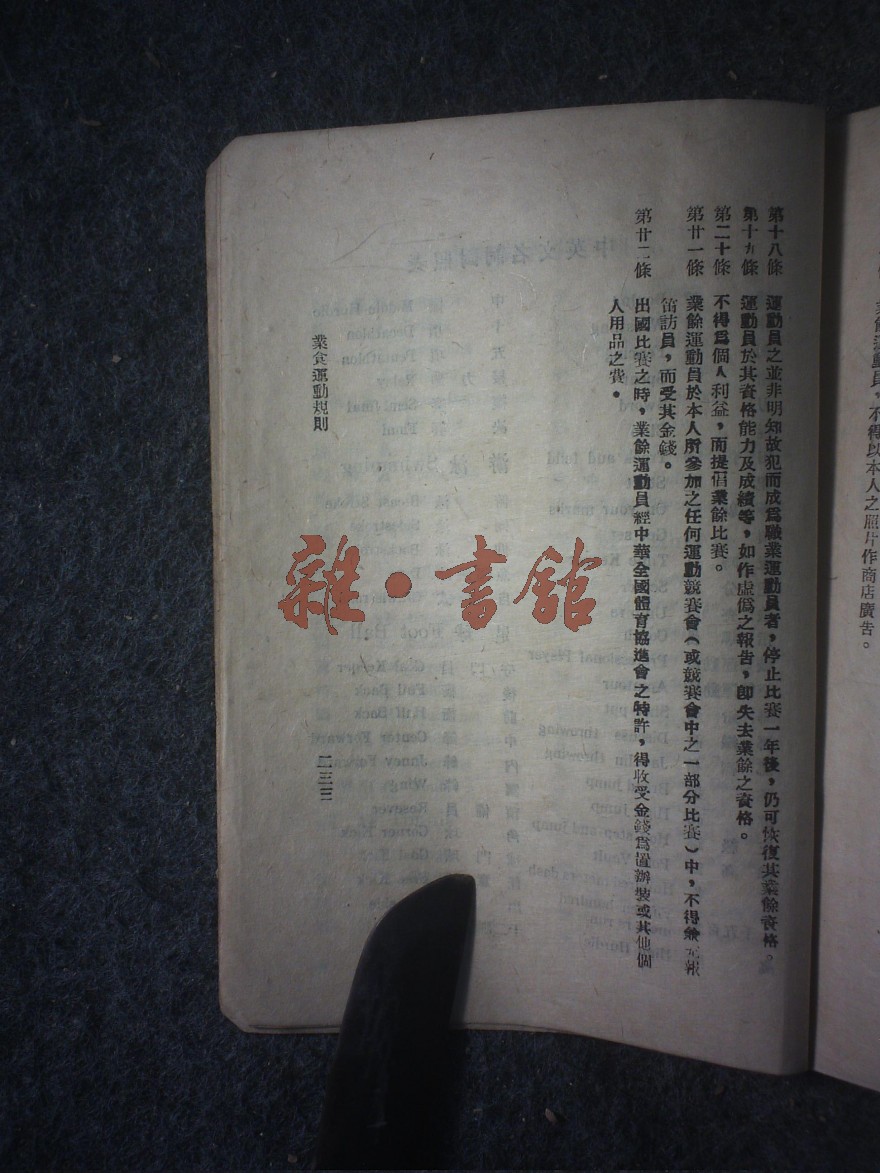 業餘運動員，不得以本人之照片作商店廣告。
第十八條　運動員之並非明知故犯而成爲職業運動員者，停止比賽一年後，仍可恢復其業餘資格。
第十九條　運動員於其資格能力及成績等，如作虛僞之報告，卽失去業餘之資格。
第二十條　不得爲個人利益，而提倡業餘比賽。
第廿一條　業餘運動員於本人所參加之任何運動競賽會（或競賽會中之一部分比賽）中，不得兼充報
笛訪員，而受其金錢。
第廿二條　出國比賽之時，業餘運動員經中華全國體育協進會之特許，得收受金錢爲置辦裝或其他個
人用品之費。
業食運動規則
二三三
雜·書館